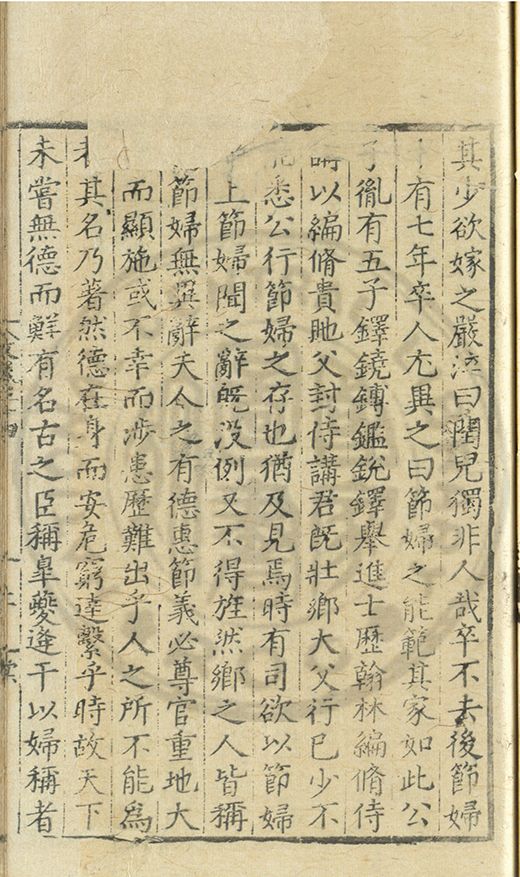 其少欲嫁之嚴泣曰閏兒獨非人哉卒不去後節婦
有七年卒人尤異之曰節婦之能範其家如此公
子胤有五子鐸鏡鎛鑑銳鐸舉進士歷翰林編脩侍
講以編脩貴貤父封侍講君旣壯鄉大父行已少不
悉公行節婦之存也猶及見焉時有司欲以節婦
上節婦聞之辭旣没例又不得旌然鄉之人皆稱
節婦無異辭夫今之有德惠節義必尊官重地大
而顯施或不幸而涉患歷難出乎人之所不能為
其名乃著然德在身而安危窮達繫乎時故天下
未嘗無德而鮮有名古之臣稱臯夔逢干以婦稱者